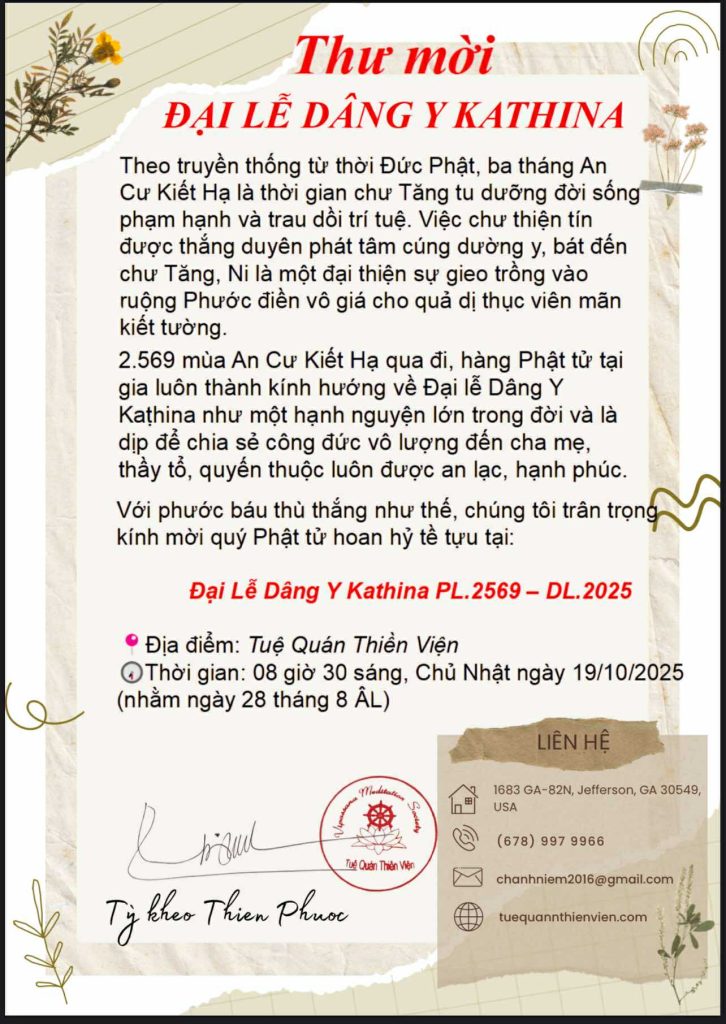 Thư mời
ĐẠI LỄ DÂNG Y KATHINA
Theo truyền thống từ thời Đức Phật, ba tháng An
Cư Kiết Hạ là thời gian chư Tăng tu dưỡng đời sống
phạm hạnh và trau dồi trí tuệ. Việc chư thiện tín
được thắng duyên phát tâm cúng dường y, bát đến
chư Tăng, Ni là một đại thiện sự gieo trồng vào
ruộng Phước điền vô giá cho quả dị thục viên mãn
kiết tường.
2.569 mùa An Cư Kiết Hạ qua đi, hàng Phật tử tại
gia luôn thành kính hướng về Đại lễ Dâng Y
Kaṭhina như một hạnh nguyện lớn trong đời và là
dịp để chia sẻ công đức vô lượng đến cha mẹ,
thầy tổ, quyến thuộc luôn được an lạc, hạnh phúc.
Với phước báu thù thắng như thế, chúng tôi trân trọng
kính mời quý Phật tử hoan hỷ tề tựu tại:
Đại Lễ Dâng Y Kathina PL.2569 – DL.2025
Địa điểm: Tuệ Quán Thiền Viện
Thời gian: 08 giờ 30 sáng, Chủ Nhật ngày 19/10/2025
(nhằm ngày 28 tháng 8 ÂL)
Vipassana Meditation Society
Tuệ Quán Thiền Viện
Tỳ kheo Thien Phuoc
LIÊN HỆ
1683 GA-82N, Jefferson, GA 30549,
USA
(678) 997 9966
chanhniem2016@gmail.com
tuequannthienvien.com